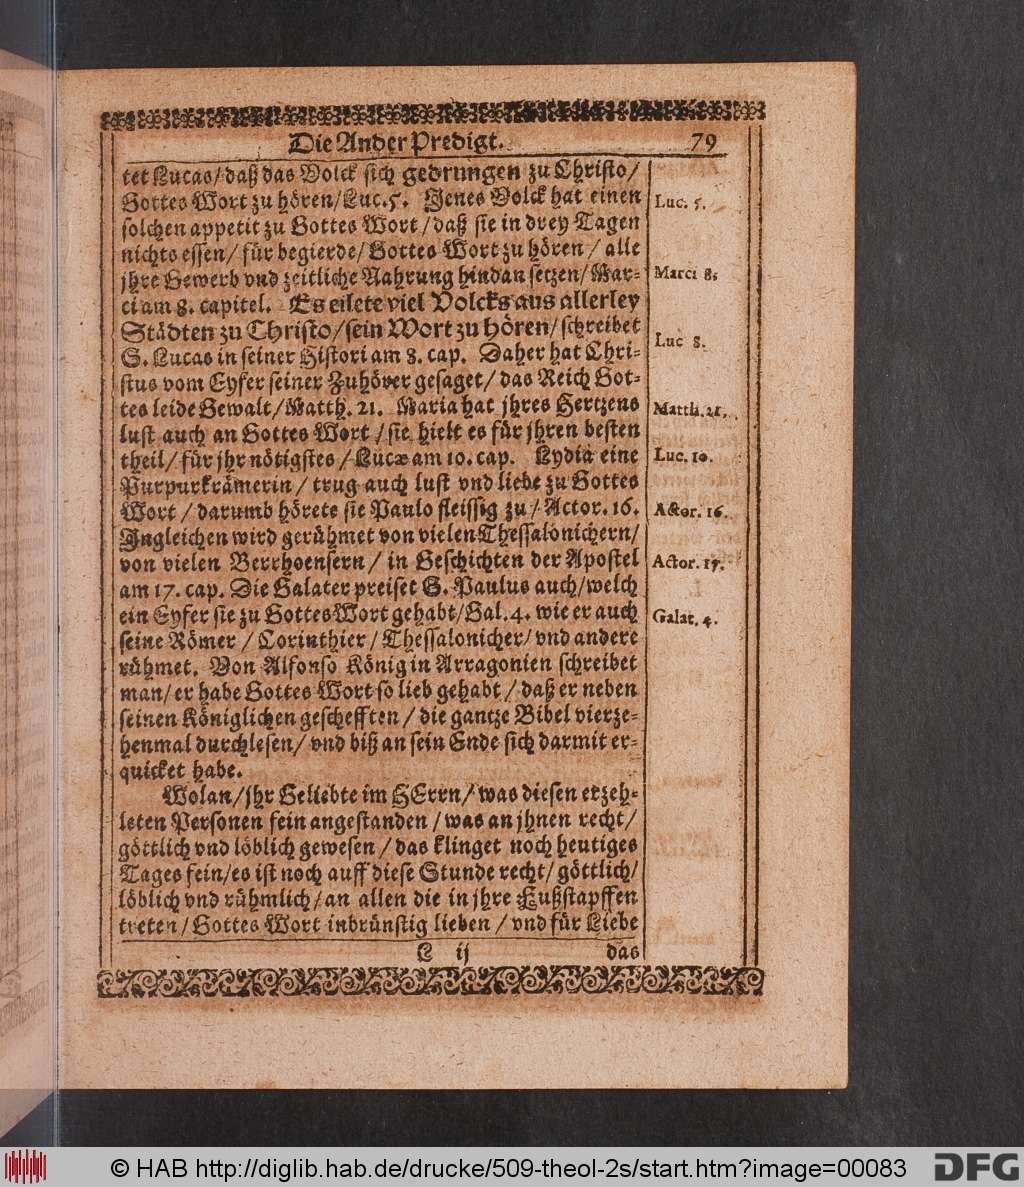 Die Ander Predigt. 79
tet Lucas/daß das Volck sich gedrungen zu Christo/
Gottes Wort zu hören/Luc.5. Jenes Volck hat einen
Luc. 5.
solchen appetit zu Gottes Wort/daß sie in drey Tagen
nichts essen/für begierde/Gottes Wort zu hören/alle
jhre Gewerb vnd zeitliche Nahrung hindan setzen/Mar-
Marci 8.
ci am 8. capitel. Es eilete viel Volcks aus allerley
Städten zu Christo/sein Wort zu hören/schreibet
Luc 8.
S. Lucas in seiner Histori am 8. cap. Daher hat Chri-
stus vom Eyfer seiner Zuhörer gesaget/das Reich Got-
tes leide Gewalt/Matth. 21. Maria hat jhres Hertzens
Matth. 21.
lust auch an Gottes Wort/sie hielt es für jhren besten
theil/für jhr nötigstes/Lucæ am 10. cap. Lydia eine
Luc. 10.
Purpurkrämerin/trug auch lust vnd liebe zu Gottes
Wort/darumb hörete sie Paulo fleissig zu/Actor. 16.
Actor. 16.
Ingleichen wird gerühmet von vielen Thessalonichern/
von vielen Berrhoensern/in Geschichten der Apostel
Actor. 17.
am 17. cap. Die Galater preiset S. Paulus auch/welch
ein Eyfer sie zu Gottes Wort gehabt/Gal. 4. wie er auch
Galat. 4.
seine Römer/Corinthier/Thessalonicher/vnd andere
rühmet. Von Alfonso König in Arragonien schreibet
man/er habe Gottes Wort so lieb gehabt/daß er neben
seinen Königlichen geschefften/die gantze Bibel vierze-
henmal durchlesen/vnd biß an sein Ende sich darmit er-
quicket habe.
Wolan/jhr Geliebte im HErrn/was diesen erzeh-
leten Personen fein angestanden/was an jhnen recht/
göttlich vnd löblich gewesen/das klinget noch heutiges
Tages fein/es ist noch auff diese Stunde recht/göttlich/
löblich vnd rühmlich/an allen die in jhre Fußstapffen
treten/Gottes Wort inbrünstig lieben/vnd für Liebe
L ij das
© HAB http://diglib.hab.de/drucke/509-theol-2s/start.htm?image=00083
DFG